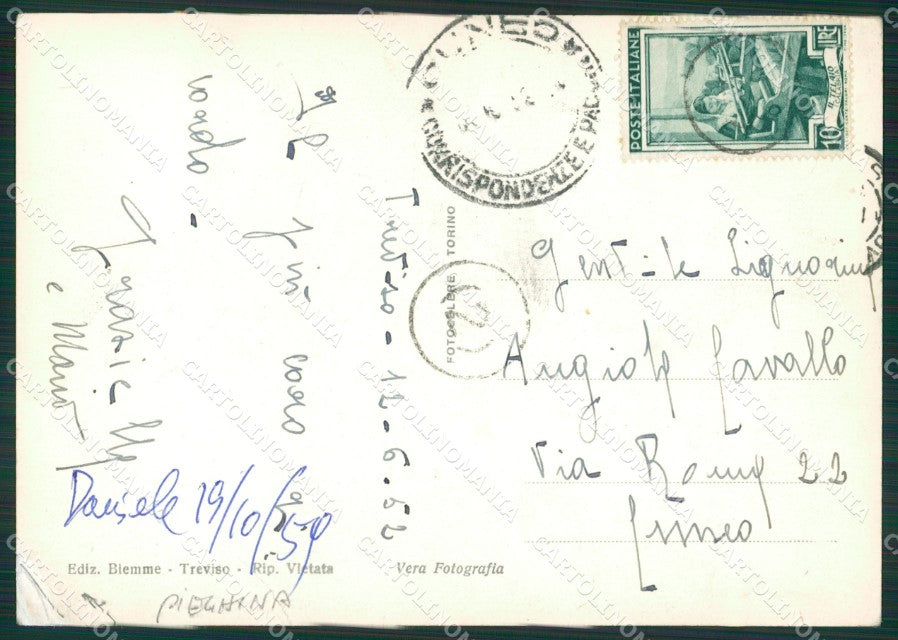 Treviso - 12-6.52
Il più caro
ricordo -
Graziella
e Mario
Daniele 19/10/59
Ediz. Biemme - Treviso - Rip. Vietata
Vera Fotografia
PIEGHINA
FOTOCELERE TORINO
CUNEO
CORRISPONDENZE E PAC
POSTE ITALIANE
LIRE
10
Gent-le Signorina
Angiola Cavallo
Via Roma 22
Cuneo
CARTOLINOMANIA